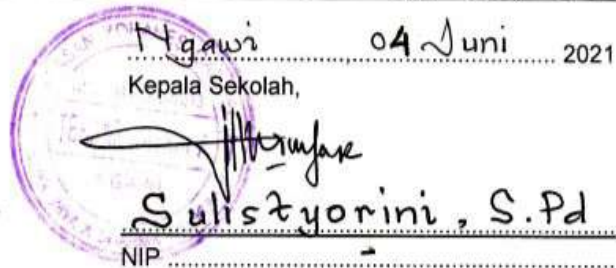 Ngawi 04 Juni 2021
Kepala Sekolah,
Sulistyorini, S.Pd
NIP -